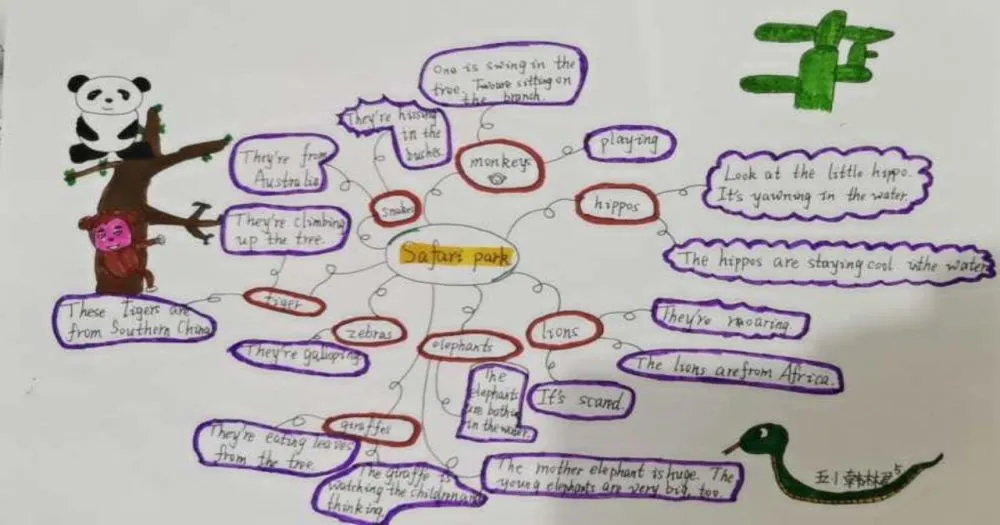 One is swing in the
tree. Two are sitting on
the branch.
They're hissing
in the
bushes.
monkeys
playing
They're from
Australia
snakes
hippos
Look at the little hippo.
It's yawning in the water.
They're climbing
up the tree.
Safari park
The hippos are staying cool the water
These Tigers are
from Southern China
tiger
zebras
They're galloping
elephants
lions
They're roaring.
The lions are from Africa.
The
elephants
in the water.
It's scared.
giraffes
They're eating leaves
from the tree.
The giraffe is
watching the children and
thinking.
The mother elephant is huge. The
young elephants are very big, too.
五1 韩林
5